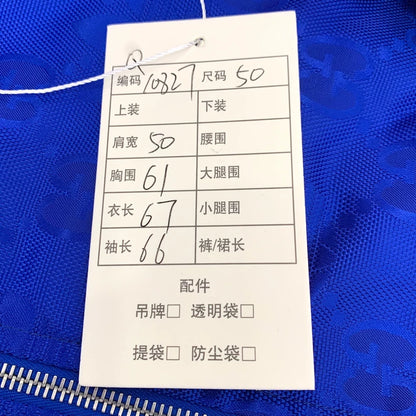 Q
编码 10827 尺码 50
上装 下装
肩宽 50 腰围
胸围 61 大腿围
衣长 67 小腿围
袖长 66 裤/裙长
配件
吊牌□ 透明袋□
提袋□ 防尘袋□